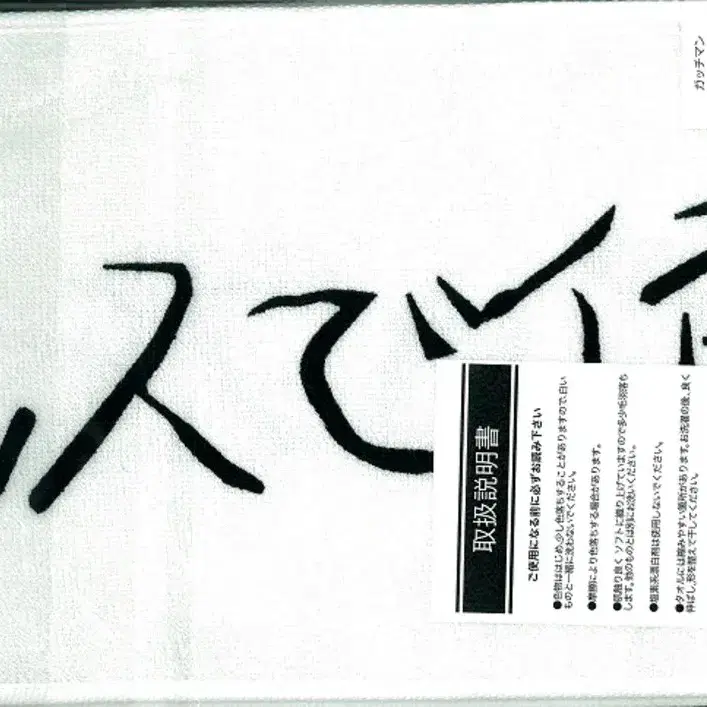 スで
ガッチマン
取扱説明書
ご使用になる前に必ずお読み下さい
●色物ははじめ、少し色落ちすることがありますので、白い
ものと一緒に洗わないでください。
●摩擦により色落ちする場合があります。
●肌触り良く ソフトに織り上げていますので多少毛羽落ち
します。他のものとは別にお洗いください。
●塩素系漂白剤は使用しないでください。
●タオルには縮みやすい箇所があります。お洗濯の後、良く
伸ばし、形を整えて干してください。